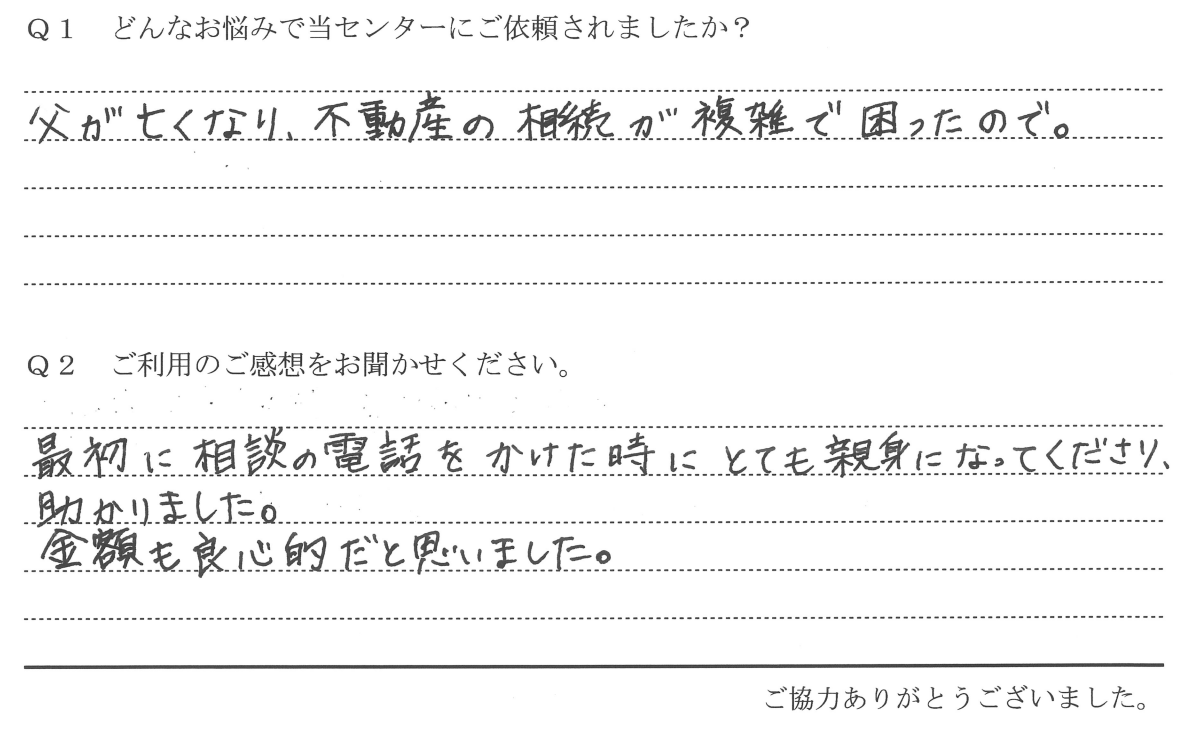 Q1 どんなお悩みで当センターにご依頼されましたか？
父が亡くなり、不動産の相続が複雑で困ったので。
Q2 ご利用のご感想をお聞かせください。
最初に相談の電話をかけた時にとても親身になってくださり、
助かりました。
金額も良心的だと思いました。
ご協力ありがとうございました。